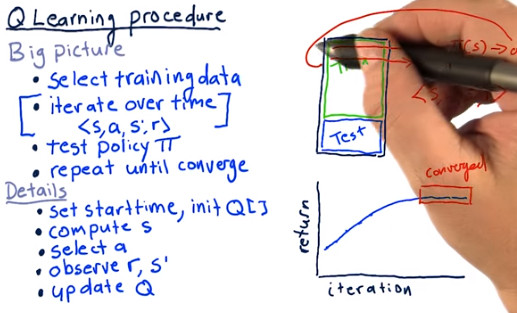 Q Learning procedure
Big picture
• select training data
• iterate over time
<s,a,s',r>
• test policy π
• repeat until converge
Details
• set starttime, init Q[]
• compute s
• select a
• observe r, s'
• update Q
(s) → a
<s
Test
converged
return
iteration